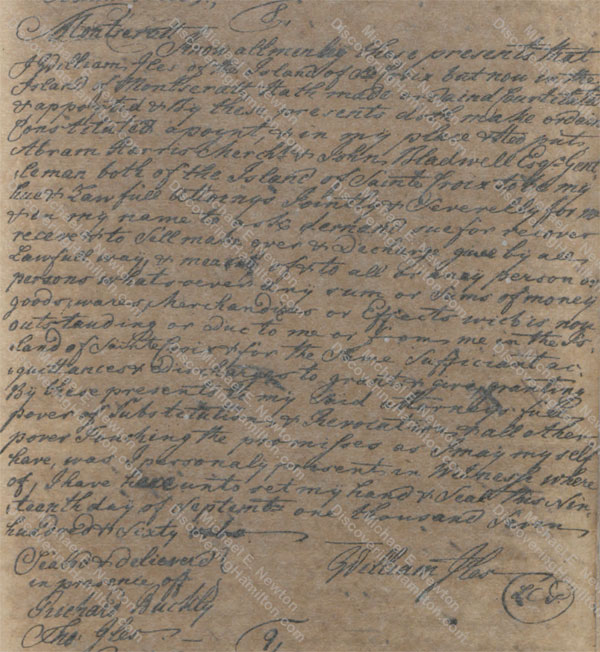 8,
Montserat
Know all men by these presents that
I William Iles of the Island of St Croix but now in the
Island of Montserrat hath made ordaind Constitute
& appointed & By these presents doth make ordain
Constitute & apoint, & in my place & sted put,
Abram Harris Merchtt & John Bladwell Esqr Gent
leman both of the Island of Sainte Croix to be my
true & Lawfull attornys Jointly & Severelly for me
& in my name to ask demand sue for recover
receve & to Sell make over & Decharge quee by all
Lawfull way, & means of & to all or aney person or
persons whatsoever aney sum or sums of money
goods wares Merchandizes or Effects wich is now
outstanding or due to me or from me in the Is-
land of Sainte Croix & for the Same Sufficiant ac-
quittances & Discharges to grant & give granting
By these presents to my said attorneys full
power of Substitution & Revocation & all other
power Touching the promisses as I may my self
here, was I personaly present in Witnesse where
of, I have here unto set my hand & Seal this Nin-
teenth day of Septembr one thousand Seven
hundred & Sixty
Seald & deliverd
in presence of
William Iles
Richard Buckly
LS
Tho: Iles
9,
Michael E. Newton
DiscoveringHamilton.com